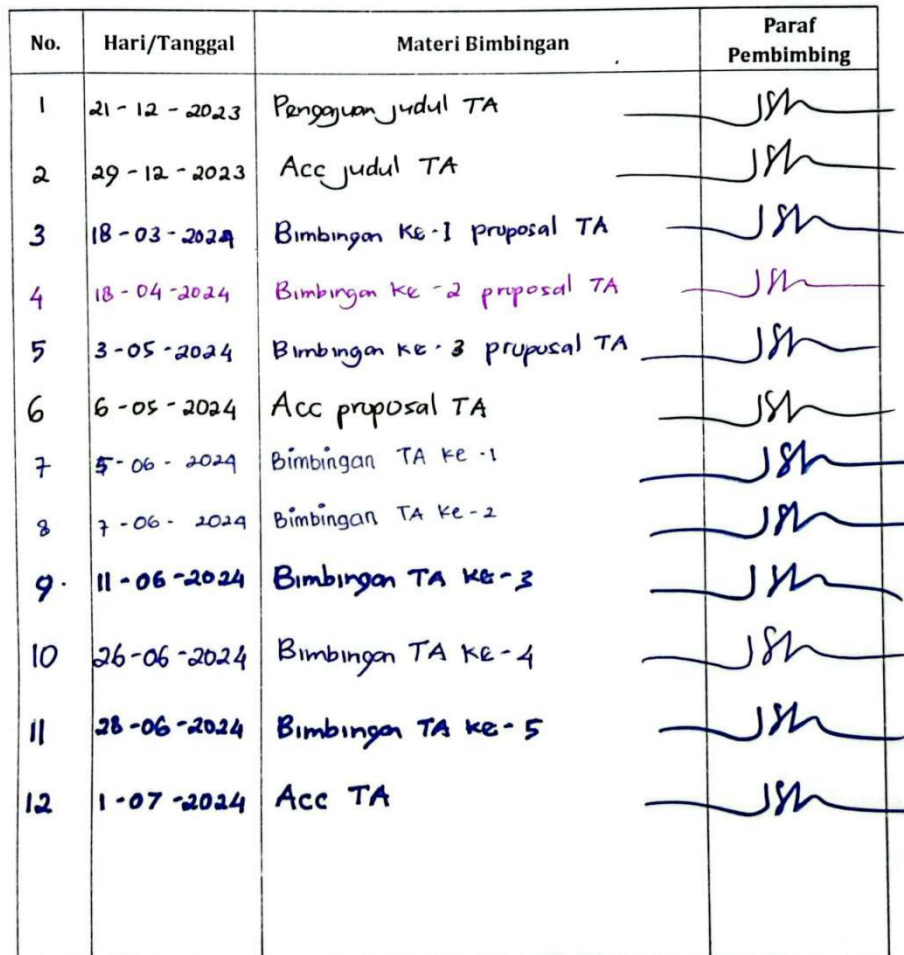 No. Hari/Tanggal Materi Bimbingan Paraf Pembimbing
1 21-12-2023 Pengajuan judul TA
2 29-12-2023 Acc judul TA
3 18-03-2024 Bimbingan Ke-1 proposal TA
4 18-04-2024 Bimbingan Ke-2 proposal TA
5 3-05-2024 Bimbingan Ke-3 proposal TA
6 6-05-2024 Acc proposal TA
7 5-06-2024 Bimbingan TA Ke-1
8 7-06-2024 Bimbingan TA Ke-2
9. 11-06-2024 Bimbingan TA Ke-3
10 26-06-2024 Bimbingan TA Ke-4
11 28-06-2024 Bimbingan TA Ke-5
12 1-07-2024 Acc TA